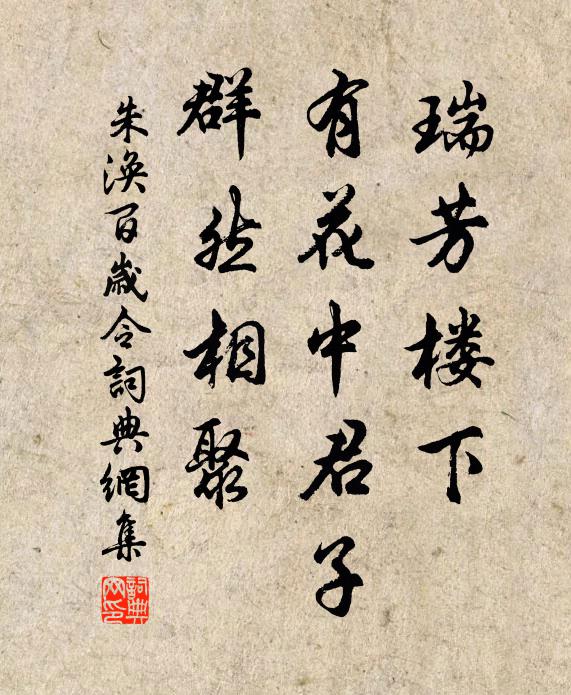 瑞芳楼下
有花中君子
群然相聚
朱渙百歲令詞典網集
詞典网印